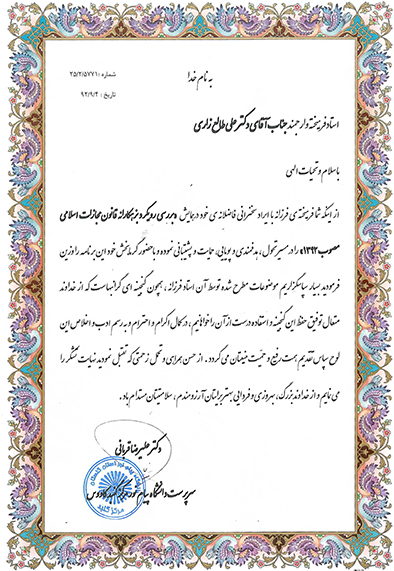 به نام خدا
شماره : ۲۵/۲/۵۷۷۱
تاریخ : ۹۲/۹/۴
استاد فریخته و ارجمند جناب آقای دکتر علی طالع زاری
با سلام و تحیات الهی
از اینکه شما فریخته ی فرزانه با ایراد سخنرانی فاضلانه ی خود در همایش «بررسی رویکرد بزهکارانه قانون مجازات اسلامی
مصوب ۱۳۹۲» را در مسیر تحول، هدفمندی و پویایی، حمایت و پشتیبانی نموده و با حضور گرمابخش خود این برنامه را وزین
فرمودید بسیار سپاسگزاریم موضوعات مطرح شده توسط آن استاد فرزانه، همچون گنجینه ای گرانبهاست که از خداوند
متعال توفیق حفظ این گنجینه و استفاده درست از آن را خواهانیم، در کمال اکرام و احترام و به رسم ادب و اخلاص این
لوح سپاس تقدیم همت رفیع و حمیت منیعتان می گردد. از حسن همراهی و تحمل زحمتی که تقبل نمودید نهایت تشکر را
می نمایم و از خداوند بزرگ، بهروزی و فردایی بهتر برایتان آرزومندم، سلامتیتان مستدام باد.
دکتر علیرضا قربانی
سرپرست دانشگاه پیام نور مرکز گنبد کاووس
مرکز گنبد